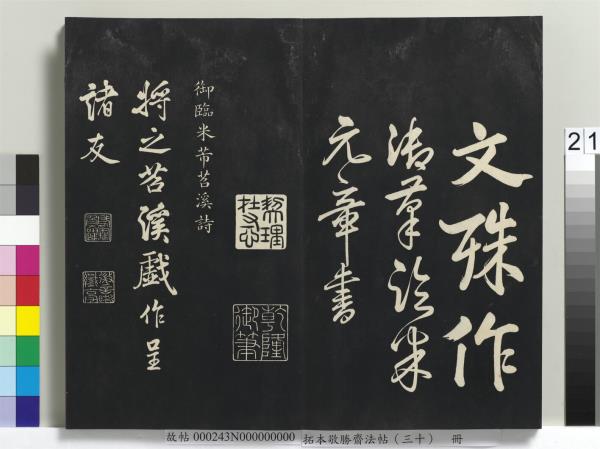 文殊作
御筆臨米
元章書
乾隆
御筆
御臨米芾苕溪詩
將之苕溪戲作呈
諸友
故帖000243N000000000
拓本敬勝齋法帖（三十） 冊
21